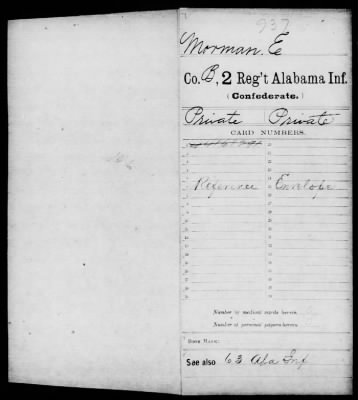 937
Morman, E
Co. B, 2 Reg't Alabama Inf.
(Confederate.)
Private Private
CARD NUMBERS.
Reference Envelope
Number of medical cards herein
Number of personal papers herein
BOOK MARK:
See also 63 Ala Inf